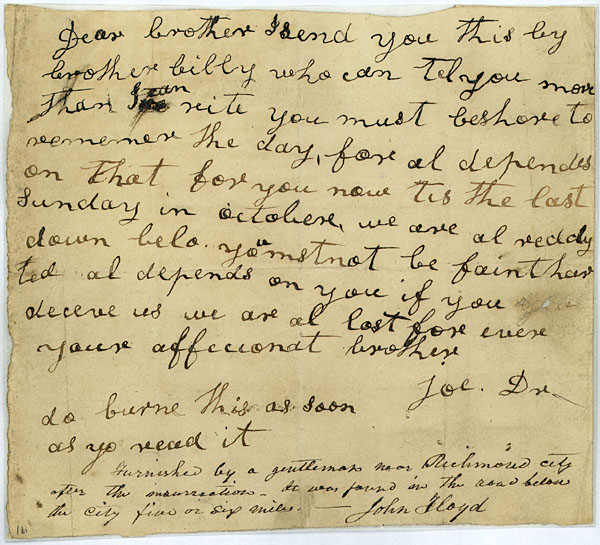 Dear brother I send you this by
brother billy who can tel you more
than I can rite you must beshore to
rememer the day, for al dependes
on that for you now tis the last
sunday in october, we are al reddy
down belo. you mst not be faint har
ted al depends on you if you
deceve us we are al lost for ever
your affecionat brother
Joe. Dr
do burne this as soon
as yo read it
Furnished by a gentleman near Richmond city
after the insurrection - It was found in the road below
the city five or six miles. — John Floyd
16